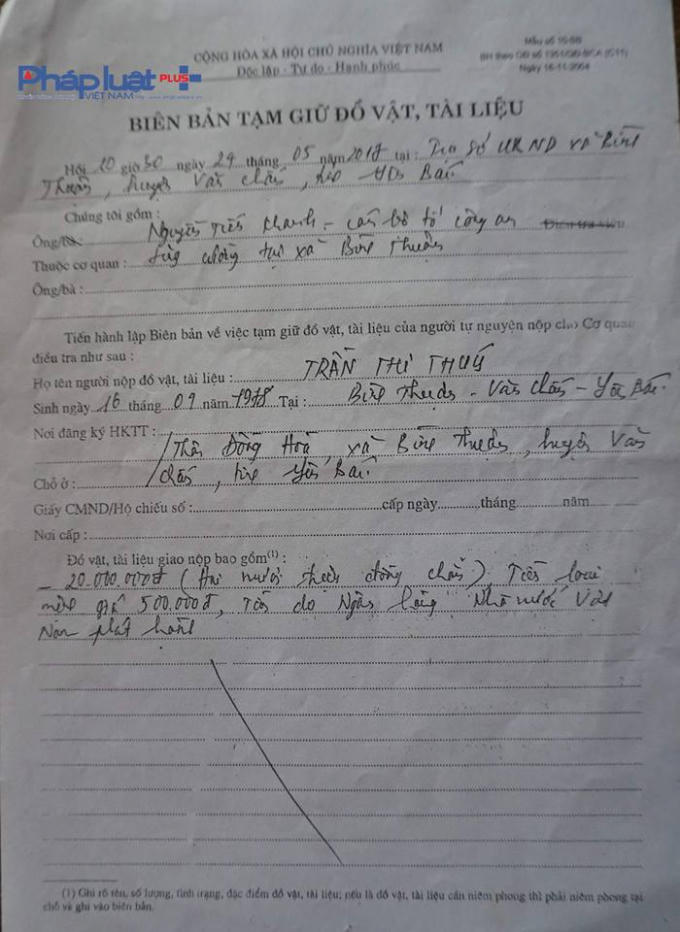 Pháp luật PLUS
VIỆT NAM
CỘNG HÒA XÃ HỘI CHỦ NGHĨA VIỆT NAM
Độc lập - Tự do - Hạnh phúc
Mẫu số
BH theo QĐ số
Ngày 16-11-2004
BIÊN BẢN TẠM GIỮ ĐỒ VẬT, TÀI LIỆU
Hồi 20 giờ 30 ngày 29 tháng 05 năm 2018 tại : Trụ Sở UBND xã Bình
Thuận, huyện Văn Chấn, tỉnh Yên Bái.
Chúng tôi gồm :
Ông/Bà: Nguyễn Tiến Khanh - cán bộ tổ công an
Thuộc cơ quan : tăng cường tại xã Bình Thuận
Ông/bà :
Tiến hành lập Biên bản về việc tạm giữ đồ vật, tài liệu của người tự nguyện nộp cho Cơ quan
điều tra như sau :
Họ tên người nộp đồ vật, tài liệu : TRẦN THỊ THUÝ
Sinh ngày 16 tháng 09 năm 1978 Tại : Bình Thuận - Văn Chấn - Yên Bái.
Nơi đăng ký HKTT :
Thôn Đồng Hoà, xã Bình Thuận, huyện Văn
Chỗ ở : Chấn, tỉnh Yên Bái.
Giấy CMND/Hộ chiếu số : cấp ngày tháng năm
Nơi cấp :
Đồ vật, tài liệu giao nộp bao gồm(1) :
- 20.000.000đ (Hai mươi triệu đồng chẵn), Tiền loại
mệnh giá 500.000đ, tiền do Ngân hàng Nhà nước Việt
Nam phát hành
(1) Ghi rõ tên, số lượng, tình trạng, đặc điểm đồ vật, tài liệu; nếu là đồ vật, tài liệu cần niêm phong thì phải niêm phong tại
chỗ và ghi vào biên bản.